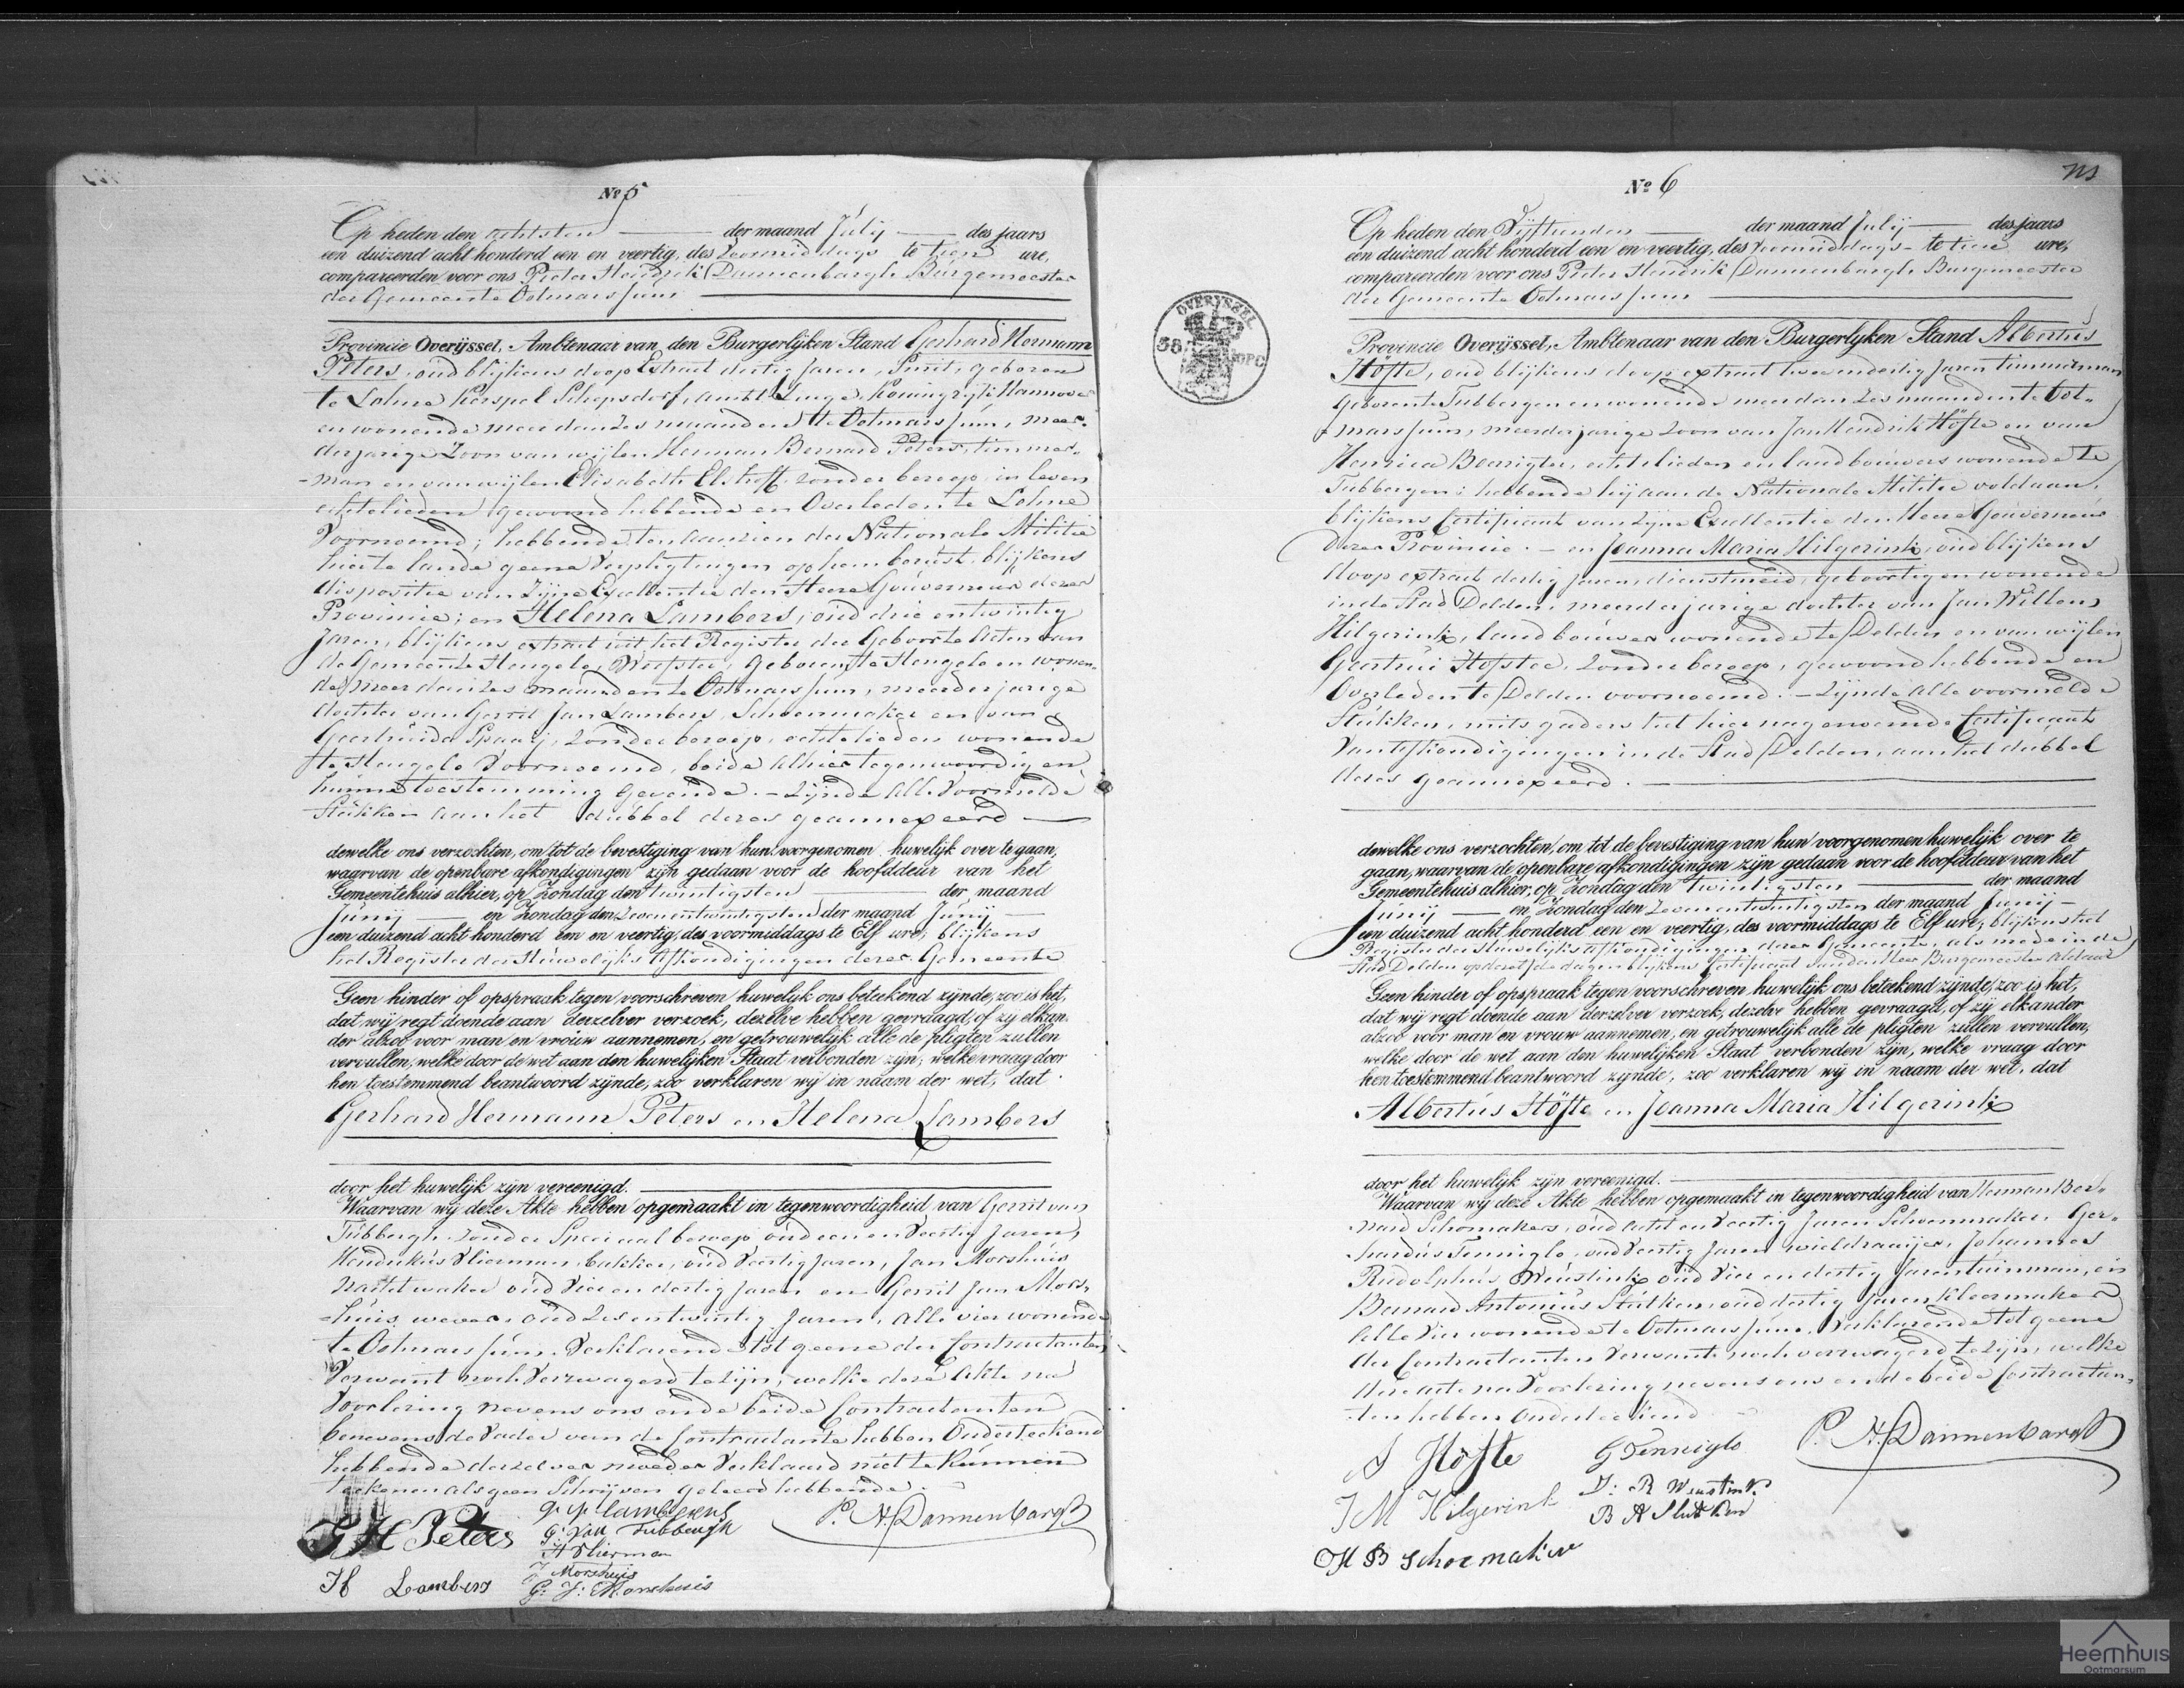 No 5
Op heden den achtsten der maand Julij des jaars
een duizend acht honderd een en veertig, des voormiddags te tien ure,
compareerden voor ons Pieter Hendrik Dannenbargh Burgemeester
der Gemeente Ootmarssum
Provincie Overijssel, Ambtenaar van den Burgerlijken Stand Gerhard Hermann
Peters, oud blijkens doop Extract dertig Jaren, Smit, geboren
te Lohne Kerspel Schepsdorf, Ambt Linge, Koningrijk Hannover
en wonende meer dan zes maanden te Ootmarssum, meer-
derjarige Zoon van wijlen Herman Bernard Peters, timmer-
-man en van wijlen Elisabeth Elshoff, zonder beroep, in leven
echtelieden gewoond hebbende en Overleden te Lohne
Voornoemd; hebbende ten aanzien der Nationale Militie
hier te lande geene Verpligtingen op hem berust, blijkens
dispositie van Zijne Excellentie den Heere Gouverneur dezer
Provincie; en Helena Lambers, oud drie en twintig
Jaren, blijkens extract uit het Register der Geboorte Acten van
de Gemeente Hengelo, geboren te Hengelo en wonen-
de meer dan zes maanden te Ootmarssum, meerderjarige
dochter van Gerrit Jan Lambers, Schoenmaker en van
Geertruida Spaaij, zonder beroep, echtelieden wonende
te Hengelo Voornoemd, beide alhier tegenwoordig en
hunne toestemming gevende. - Zijnde alle Voormelde
Stukken aan het dubbel dezes geannexeerd
dewelke ons verzochten, om tot de bevestiging van hun voorgenomen huwelijk over te gaan,
waarvan de openbare afkondigingen zijn gedaan voor de hoofddeur van het
Gemeentehuis alhier, op Zondag den twintigsten der maand
Junij en Zondag den Zevenentwintigsten der maand Junij
een duizend acht honderd een en veertig, des voormiddags te Elf ure, blijkens
het Register der Huwelijks Afkondigingen dezer Gemeente
Geen hinder of opspraak tegen voorschreven huwelijk ons beteekend zijnde, zoo is het,
dat wij regt doende aan derzelver verzoek, dezelve hebben gevraagd, of zy elkan-
der alzoo voor man en vrouw aannemen, en getrouwelijk alle de pligten zullen
vervullen, welke door de wet aan den huwelijken Staat verbonden zijn; welke vraag door
hen toestemmend beantwoord zijnde, zoo verklaren wij in naam der wet, dat
Gerhard Hermann Peters en Helena Lambers
door het huwelijk zijn vereenigd.
Waarvan wij deze Akte hebben opgemaakt in tegenwoordigheid van Gerrit van
Tubbergh, zonder Speciaal beroep oud een en Veertig Jaren,
Hendrikus Vlierman, bakker, oud Veertig Jaren, Jan Morshuis
Nachtwaker oud Vier en dertig Jaren en Gerrit Jan Mors-
-huis, wever, oud Zes en twintig Jaren, alle vier wonende
te Ootmarssum. Verklarende tot geene der Contractanten
Verwant noch Verzwagerd te zijn, welke deze Akte na
Voorlezing nevens ons en de beide Contractanten
benevens de Vader van de Contractante hebben Onderteekend
hebbende derzelver moeder Verklaard niet te Kunnen
teekenen als geen Schrijven geleerd hebbende.
G H Peters
H Lambers
G. van Tubbergh
H Vlierman
J Morshuis
G: J: Morshuis
P. H. Dannenbargh
No 6
Op heden den Vijftienden der maand Julij des jaars
een duizend acht honderd een en veertig, des Voormiddags te tien ure,
compareerden voor ons Pieter Hendrik Dannenbargh Burgemeester
der Gemeente Ootmarssum
Provincie Overijssel, Ambtenaar van den Burgerlijken Stand Albertus
Höfte, oud blijkens doop extract twee en dertig Jaren timmerman
geboren te Tubbergen en wonende meer dan Zes maanden te Oot-
marssum, meerderjarige Zoon van Jan Hendrik Höfte en van
Henrica Boerrigter, echtelieden en landbouwers wonende te
Tubbergen; hebbende hij aan de Nationale Militie voldaan,
blijkens Certificaat van Zijne Excellentie den Heere Gouverneur
dezer Provincie. - en Joanna Maria Hilgerink, oud blijkens
doop extract dertig Jaren, dienstmeid, geboortig en wonende
in de Stad Delden, meerderjarige dochter van Jan Willem
Hilgerink, landbouwer wonende te Delden en van wijlen
Geertrui Hofstee, zonder beroep, gewoond hebbende en
Overleden te Delden voornoemd. - Zijnde alle voormelde
Stukken, mits gaders het hier nagenoemde Certificaat
van afkondigingen in de Stad Delden, aan het dubbel
dezes geannexeerd.
dewelke ons verzochten, om tot de bevestiging van hun voorgenomen huwelijk over te
gaan, waarvan de openbare afkondigingen zijn gedaan voor de hoofddeur van het
Gemeentehuis alhier, op Zondag den twintigsten der maand
Junij en Zondag den Zevenentwintigsten der maand Junij
een duizend acht honderd een en veertig, des voormiddags te Elf ure, blijkens het
Register der Huwelijks Afkondigingen dezer Gemeente, als mede in de
Stad Delden op dezelfde dagen blijkens Certificaat van den Heer Burgemeester Aldaar
Geen hinder of opspraak tegen voorschreven huwelijk ons beteekend zijnde, zoo is het,
dat wij regt doende aan derzelver verzoek, dezelve hebben gevraagd, of zij elkander
alzoo voor man en vrouw aannemen, en getrouwelijk alle de pligten zullen vervullen,
welke door de wet aan den huwelijken Staat verbonden zijn, welke vraag door
hen toestemmend beantwoord zijnde, zoo verklaren wij in naam der wet, dat
Albertus Höfte en Joanna Maria Hilgerink
door het huwelijk zijn vereenigd.
Waarvan wij deze Akte hebben opgemaakt in tegenwoordigheid van Herman Ber-
nard Schomakers, oud acht en Veertig Jaren Schoenmaker, Ger-
hardus Tenniglo, oud Veertig Jaren wieldraaijer, Johannes
Rudolphus Weustink oud Vier en dertig Jaren tuinman, en
Bernard Antonius Stutken, oud dertig Jaren Kleermaker
Alle Vier wonende te Ootmarssum, Verklarende tot geene
der Contractanten Verwant noch verzwagerd te zijn, welke
deze acte na Voorlezing nevens ons en de beide Contractan-
ten hebben Onderteekend
A Höfte
J M Hilgerink
H B Schoemaker
G Tenniglo
J: R Weustink
P. H. Dannenbargh
OVERYSSEL
Heemhuis
Ootmarsum